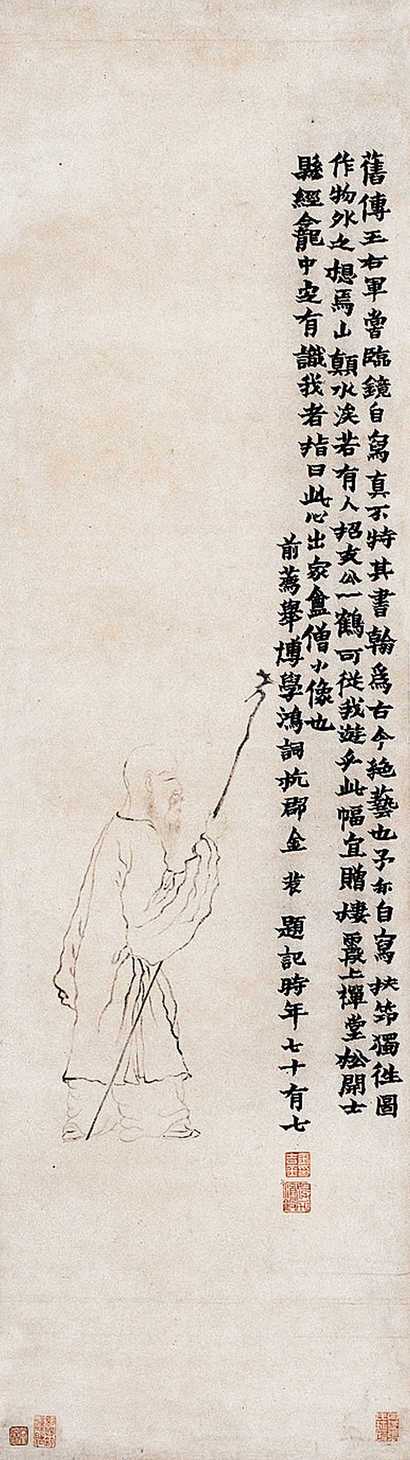 舊傳王右軍嘗臨鏡自寫真不特其書翰爲古今絶藝也予亦自寫扶笻獨徃圖
作物外之想焉山顛水涘若有人招支公一鶴可從我遊乎此幅宜贈棲霞上禪堂松開士
縣經龕中定有識我者指曰此心出家盦僧小像也
前薦舉博學鴻詞杭郡金農題記時年七十有七